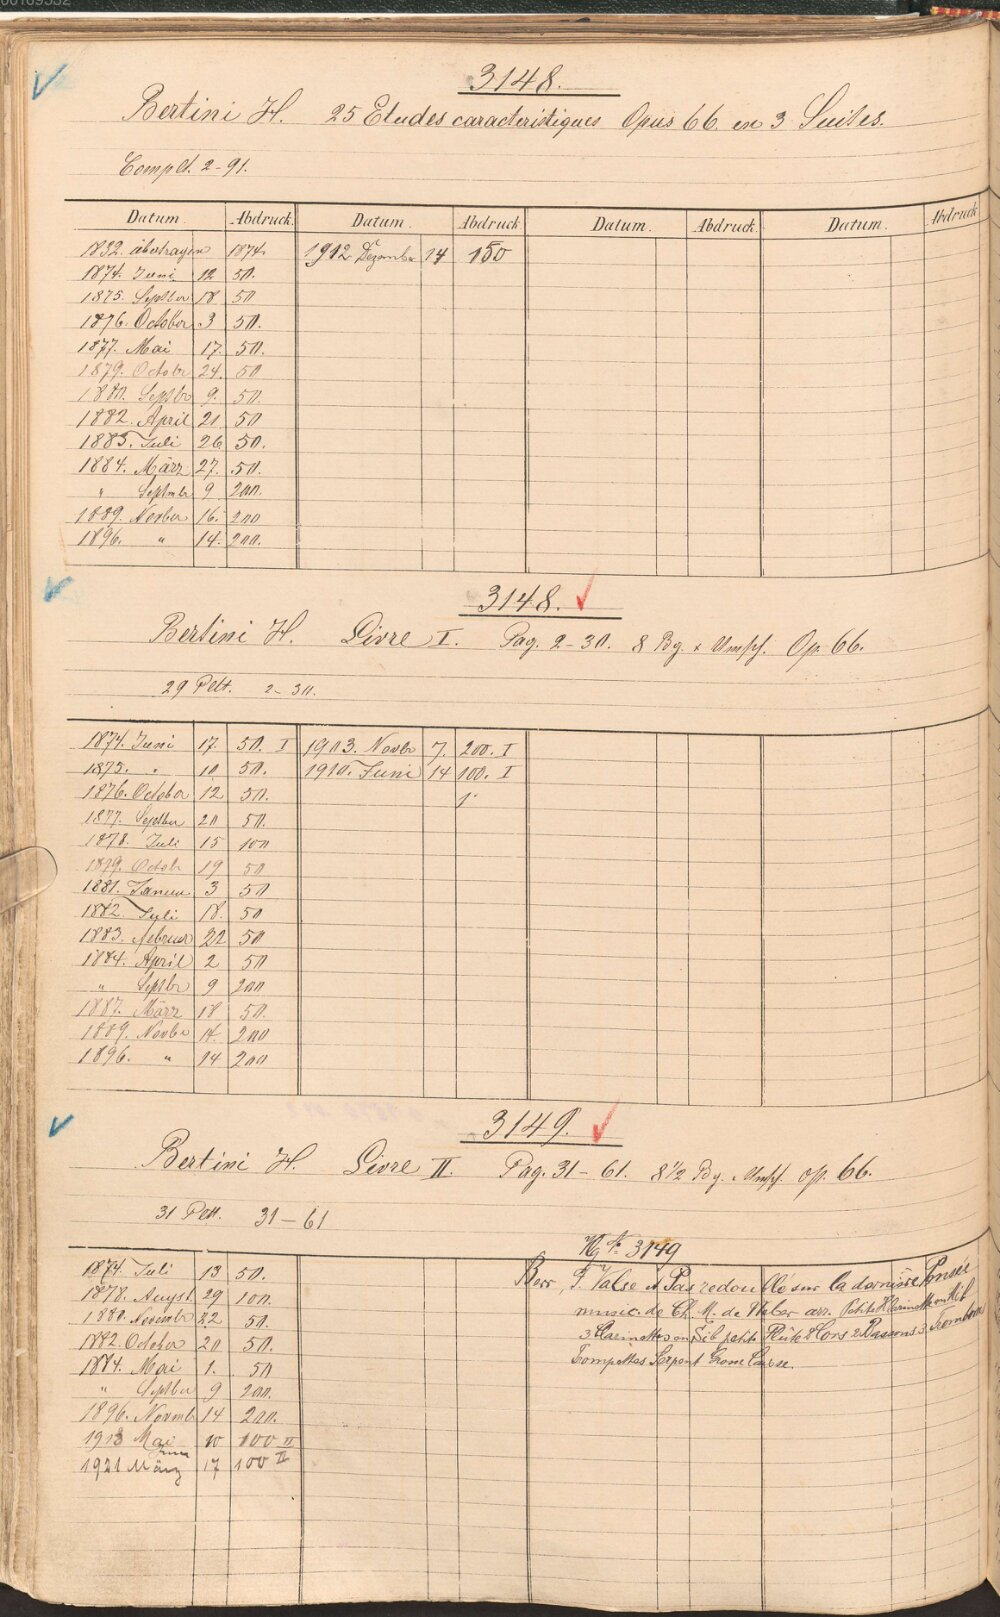 3148.
Bertini H. 25 Etudes caracteristiques Opus 66. en 3 Suites.
Complt. 2-91.
Datum. Abdruck. Datum. Abdruck Datum. Abdruck. Datum. Abdruck
1832. übertragen 1874. 1912 Dezember 14 150
1874. Juni 12 50.
1875. Septber 18 50
1876. October 3 50.
1877. Mai 17. 50.
1879. Octobr 24. 50
1880. Septbr 9. 50.
1882. April 21 50
1883. Juli 26 50.
1884. März 27. 50.
" Septmbr 9 200.
1889. Novber 16. 200
1896. " 14. 200.
3148.
Bertini H. Livre I. Pag. 2-30. 8 Bg. Umschl. Op. 66.
29 Pltt. 2-30.
1874. Juni 17. 50. I 1903. Novbr 7. 200. I
1875. " 10 50. 1910. Juni 14 100. I
1876. October 12 50.
1877. Septber 20 50.
1878. Juli 15 100
1879. Octobr 19 50
1881. Januar 3 50
1882. Juli 18. 50
1883. Februar 22 50
1884. April 2 50
" Septbr 9 200
1887. März 18 50.
1889. Novbr 14. 200
1896. " 14 200
3149.
Bertini H. Livre II. Pag. 31-61. 8 1/2 Bg. Umschl. Op. 66.
31 Pltt. 31-61
No. 3149
1874. Juli 13 50. Berr, F. Valse et Pas redoublé sur la dernière Pensée
1878. August 29 100. music. de Ch. M. de Weber arr. Petite Clarinette en Mib
1880. Novembr 22 50. 3 Clarinettes en Sib petite Flûte 2 Cors 2 Bassons 3 Trombones
1882. October 20 50. Trompettes Serpent Grosse Caisse
1884. Mai 1. 50
" Septber 9 200.
1896. Novmb 14 200.
1913 Mai 10 100 II
1921 März 17 100 II